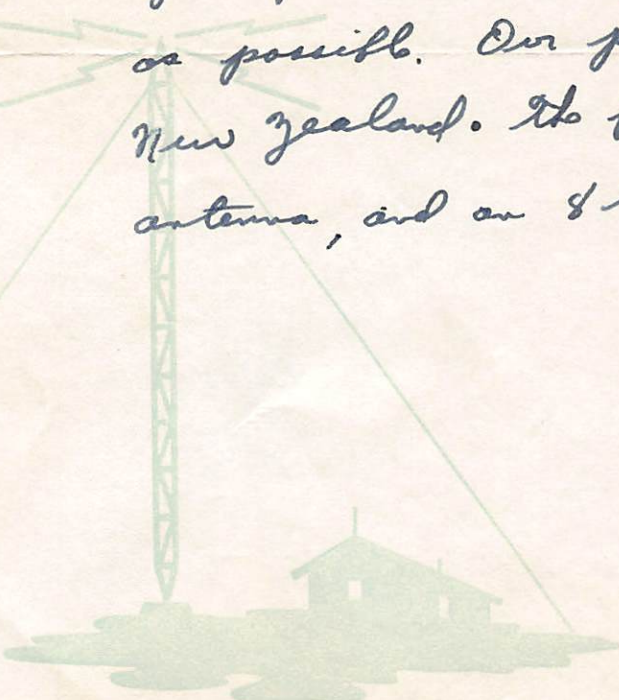 as possible. Our
New Zealand. The
antenna, and an 8